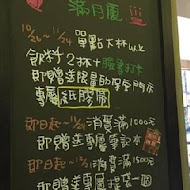 滿月圓!!!
10/26~11/24 單點大杯以上
飲料2杯+臉書打卡
即贈送限量的
專屬紙膠帶
即日起~11/30 消費滿1000元
即贈送專屬筆記本
即日起~11/30 消費滿1500元
即贈送專屬提袋一個